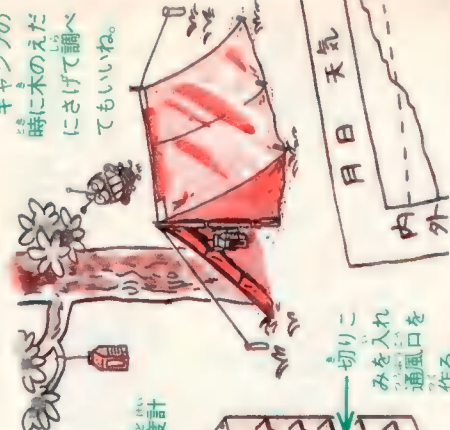 キャンプの
時に木のえだ
にさげて調べ
てもいいね。
月 日 天気
内
外
度計
切りこ
みを入れ
通風口を
作る